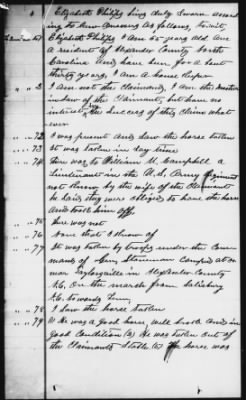 Elizabeth Phillips being duly Sworn accord
ing to law Answers as follows, to wit,
Elizabeth Phillips I am 65 years old am
a resident of Alexander County North
Carolina and have been for a bout
thirty years, I am a house keeper
" " 2 I am not the Claimant, I am the Mother
in law of the Claimant, but have no
interest in the Success of this Claim what
ever
" " 72 I was present and saw the horse taken
" " 73 It was taken in day time
" " 74 There was to William M. Campbell a
Lieutenant in the U.S. Army Regiment
not known by the wife of the Claimant
he said they were obliged to have the horse
and took him off
" " 75 There was not
" " 76 None that I know of
" " 77 It was taken by troops under the Com
mand of Gen Stoneman Camped at or
near Taylorsville in Alexander County
N.C. On the march from Salisbury
N.C. towards Tenn,
" " 78 I saw the horse taken
" " 79 (1) He was a good horse, well broke and in
good Condition (2) He was taken out of
the Claimants Stable (3) The horse was